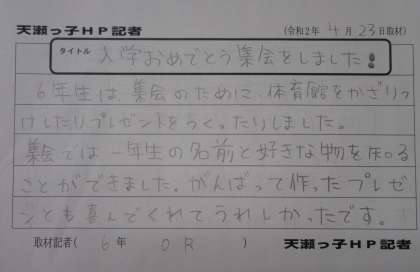 天瀬っ子HP記者 (令和2年 4月 23日取材)
タイトル 入学おめでとう集会をしました!
6年生は、集会のために、体育館をかざりつ
けしたりプレゼントをつくったりしました。
集会では一年生の名前と好きな物を知る
ことができました。がんばって作ったプレゼ
ントも喜んでくれてうれしかったです。
取材記者( 6年 O R ) 天瀬っ子HP記者